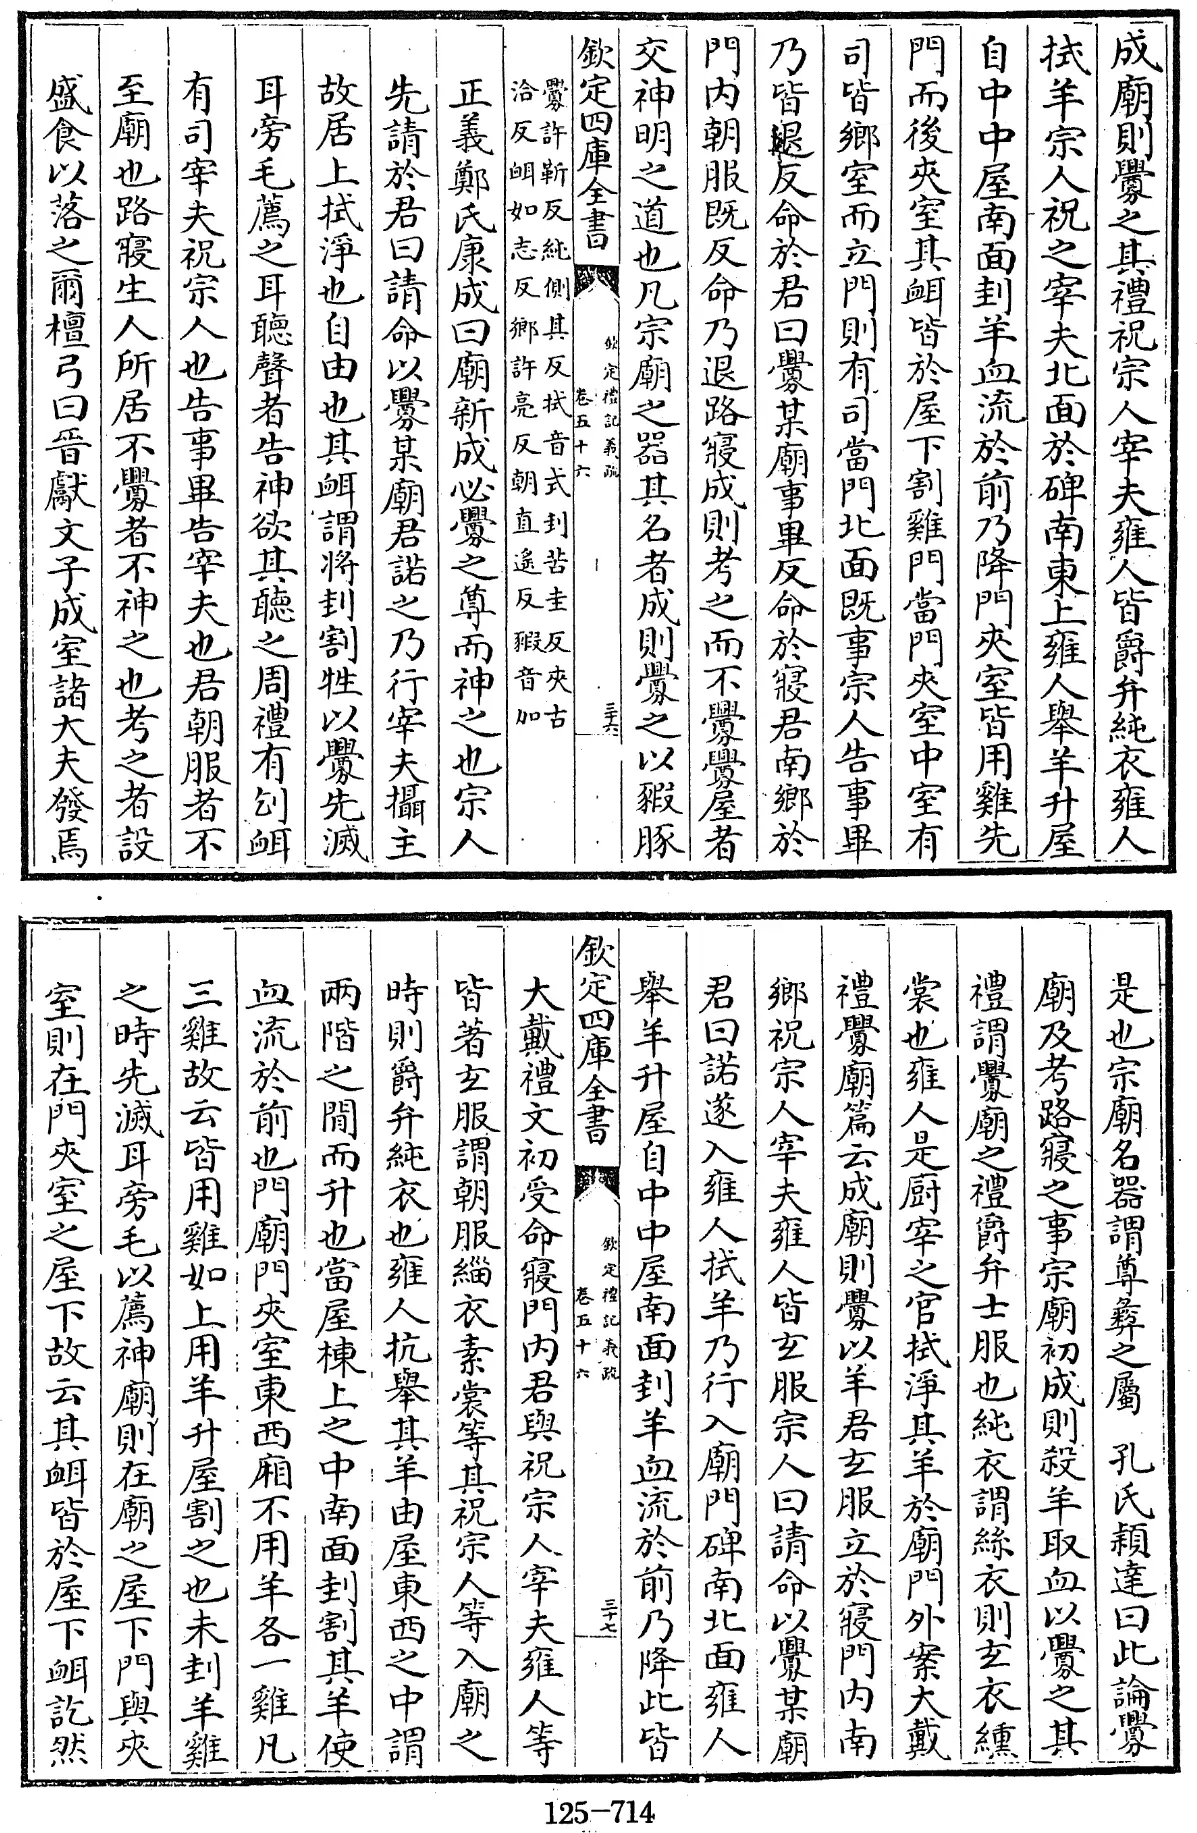 成廟則釁之其禮祝宗人宰夫雍人皆爵弁純衣雍人
拭羊宗人祝之宰夫北面於碑南東上雍人舉羊升屋
自中中屋南面刲羊血流於前乃降門夾室皆用雞先
門而後夾室其衈皆於屋下割雞門當門夾室中室有
司皆鄉室而立門則有司當門北面既事宗人告事畢
乃皆退反命於君曰釁某廟事畢反命於寢君南鄉於
門内朝服既反命乃退路寢成則考之而不釁釁屋者
交神明之道也凡宗廟之器其名者成則釁之以豭豚
欽定四庫全書
欽定禮記義疏
卷五十六
三十六
釁許靳反純側其反拭音式刲苦圭反夾古
洽反衈如志反鄉許亮反朝直遙反豭音加
正義鄭氏康成曰廟新成必釁之尊而神之也宗人
先請於君曰請命以釁某廟君諾之乃行宰夫攝主
故居上拭淨也自由也其衈謂將刲割牲以釁先滅
耳旁毛薦之耳聽聲者告神欲其聽之周禮有刉衈
有司宰夫祝宗人也告事畢告宰夫也君朝服者不
至廟也路寢生人所居不釁者不神之也考之者設
盛食以落之爾檀弓曰晉獻文子成室諸大夫發焉
是也宗廟名器謂尊彝之屬 孔氏穎達曰此論釁
廟及考路寢之事宗廟初成則殺羊取血以釁之其
禮謂釁廟之禮爵弁士服也純衣謂絲衣則玄衣纁
裳也雍人是厨宰之官拭淨其羊於廟門外案大戴
禮釁廟篇云成廟則釁以羊君玄服立於寢門内南
鄉祝宗人宰夫雍人皆玄服宗人曰請命以釁某廟
君曰諾遂入雍人拭羊乃行入廟門碑南北面雍人
舉羊升屋自中中屋南面刲羊血流於前乃降此皆
欽定四庫全書
欽定禮記義疏
卷五十六
三十七
大戴禮文初受命寢門内君與祝宗人宰夫雍人等
皆著玄服謂朝服緇衣素裳等其祝宗人等入廟之
時則爵弁純衣也雍人抗舉其羊由屋東西之中謂
兩階之間而升也當屋棟上之中南面刲割其羊使
血流於前也門廟門夾室東西廂不用羊各一雞凡
三雞故云皆用雞如上用羊升屋割之也未刲羊雞
之時先滅耳旁毛以薦神廟則在廟之屋下門與夾
室則在門夾室之屋下故云其衈皆於屋下衈訖然
125-714